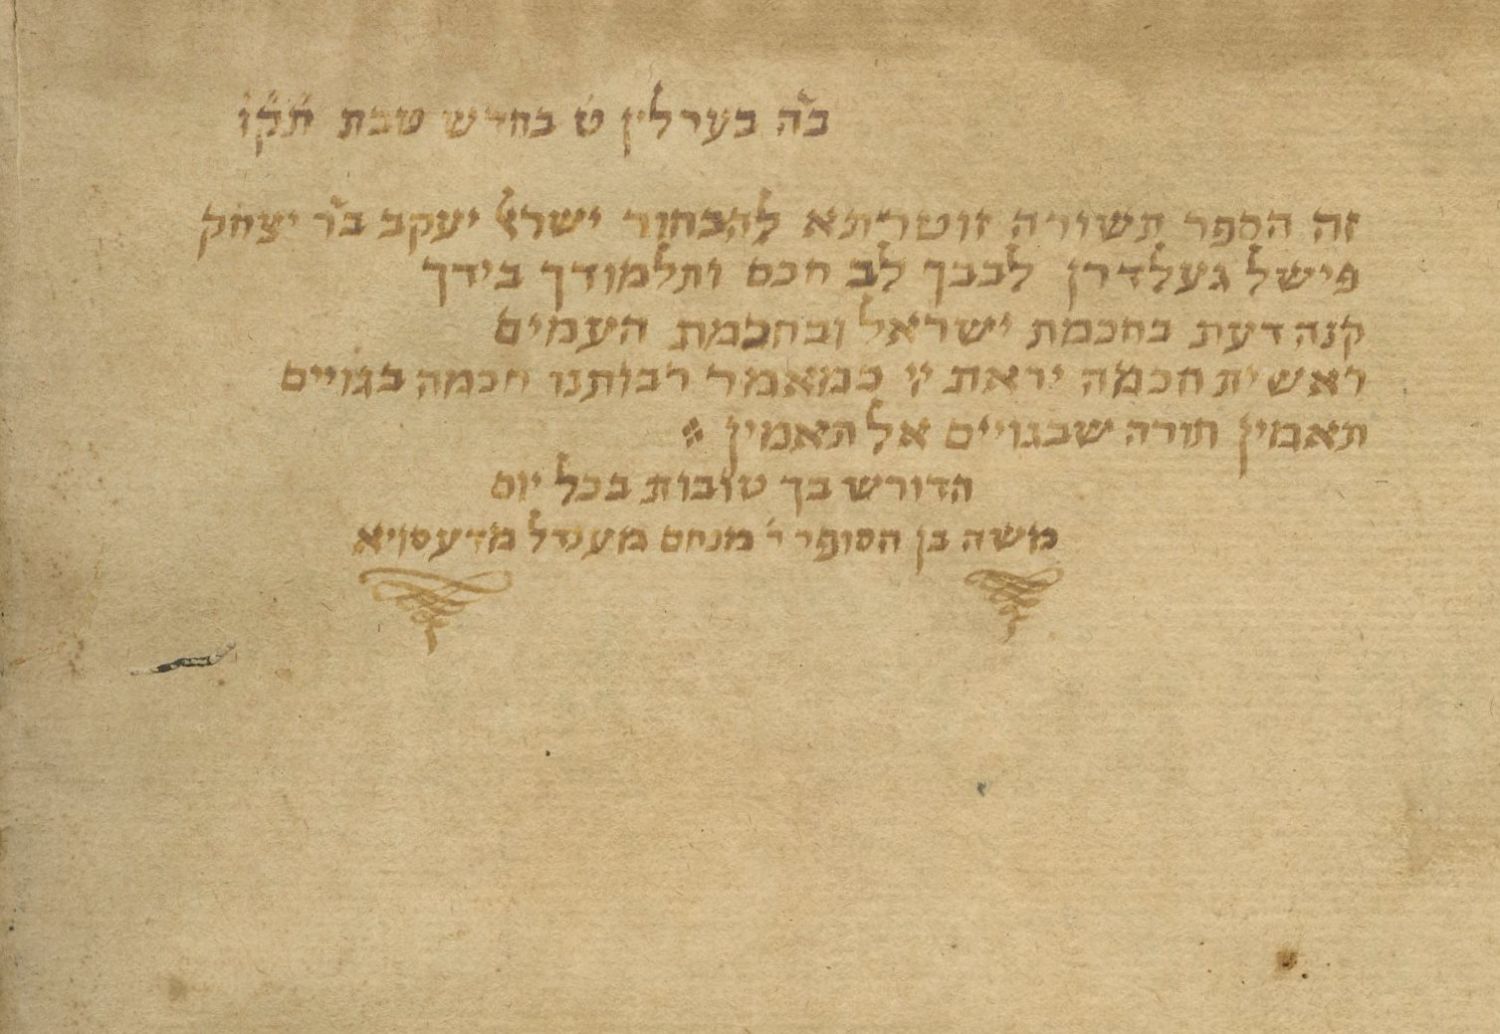 ב״ה בערלין ט׳ בחדש טבת תק״ו
זה הספר תשורה זוטרתא להבחור ישראל יעקב ב״ר יצחק
פישל געלדרן לבבך לב חכם ותלמודך בידך
קנה דעת בחכמת ישראל ובחכמת העמים
ראשית חכמה יראת יי כמאמר רבותנו חכמה בגויים
תאמין תורה שבגויים אל תאמין
הדורש בך טובות בכל יום
משה בן הסופר ר׳ מנחם מענדל מדעסויא